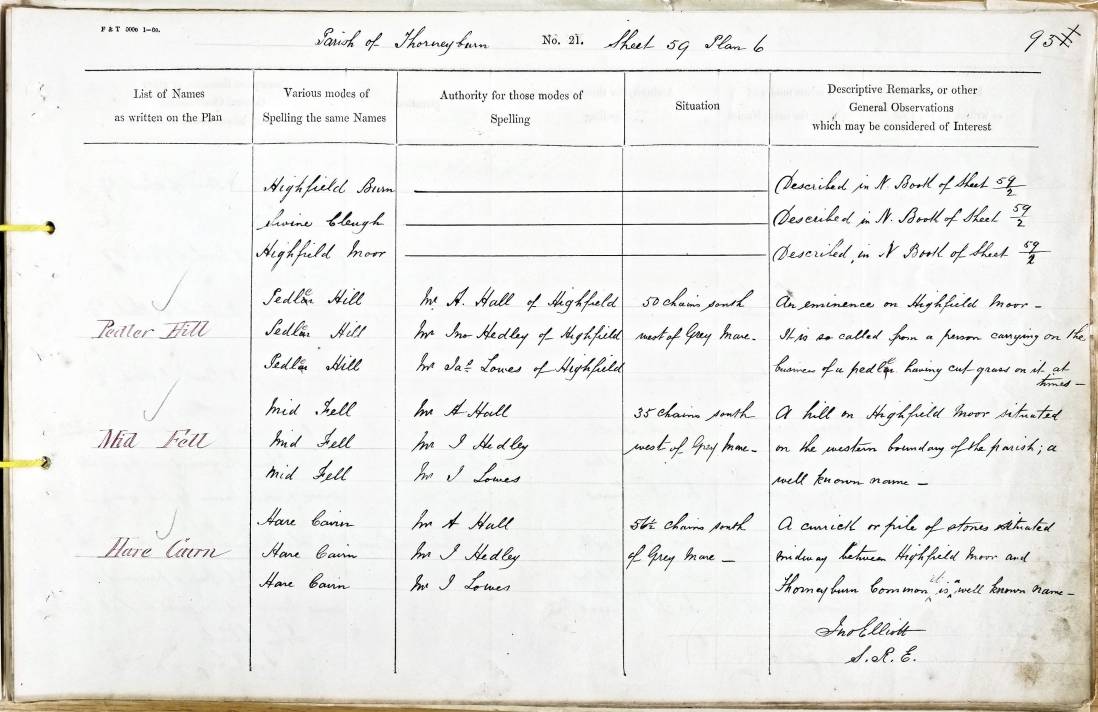 F & T 5000 1—60.
Parish of Thorneyburn No. 21. Sheet 59 Plan 6 93
List of Names
as written on the Plan
Various modes of
Spelling the same Names
Authority for those modes of
Spelling
Situation
Descriptive Remarks, or other
General Observations
which may be considered of Interest
Highfield Burn Described in N. Book of Sheet 59/2
Swine Cleugh Described in N. Book of Sheet 59/2
Highfield Moor Described in N Book of Sheet 59/2
Pedler Hill Mr A. Hall of Highfield 50 chains south An eminence on Highfield Moor –
Pedler Hill Pedler Hill Mr Jno Hedley of Highfield west of Grey Mare – It is so called from a person carrying on the
Pedler Hill Mr Jas Lowes of Highfield business of a pedler having cut grass on it at
times –
Mid Fell Mr A Hall 35 chains south A hill on Highfield Moor situated
Mid Fell Mid Fell Mr J Hedley west of Grey Mare – on the western boundary of the parish; a
Mid Fell Mr J Lowes well known name –
Hare Cairn Mr A Hall 56½ chains south A currick or pile of stones situated
Hare Cairn Hare Cairn Mr J Hedley of Grey Mare – midway between Highfield Moor and
Hare Cairn Mr J Lowes Thorneyburn Common it is a well known name –
Jno Elliott
S. R. E.